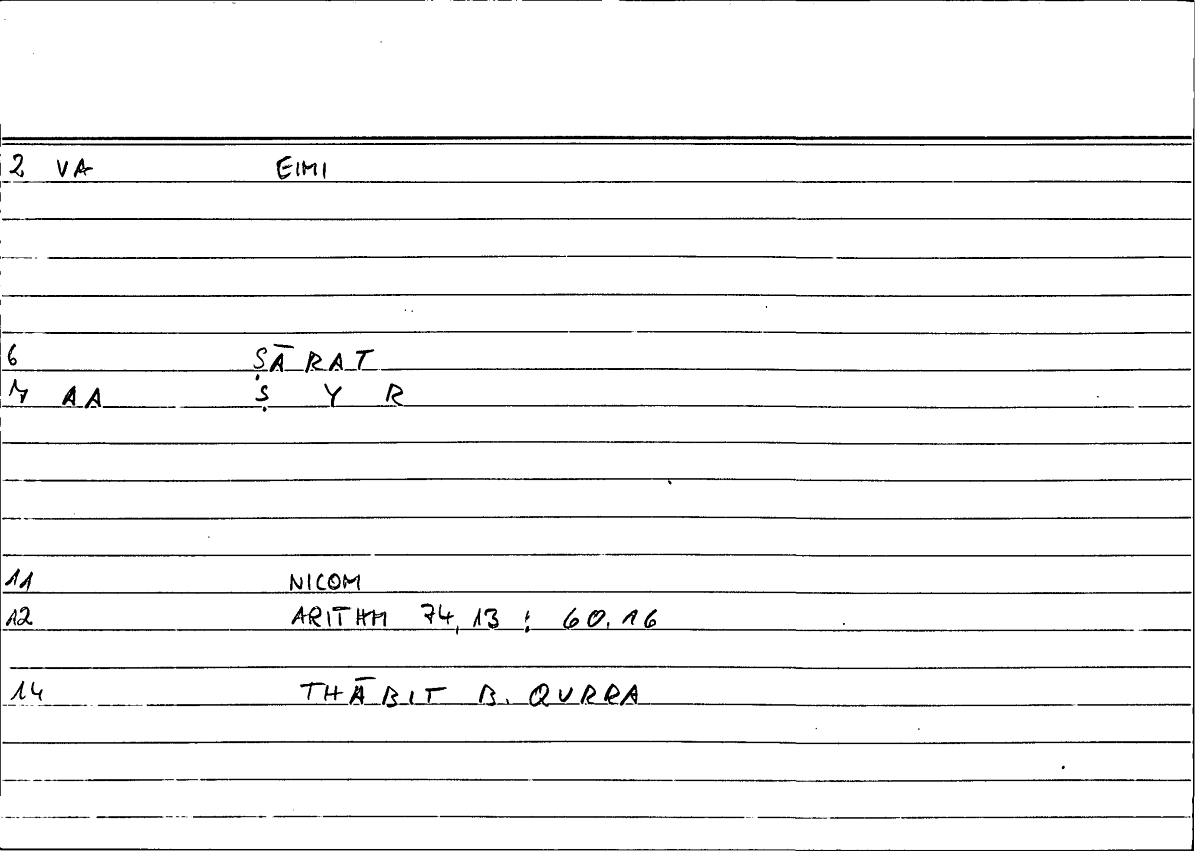 2 VA EIMI
6 ṢĀRAT
7 AA Ṣ Y R
11 NICOM
12 ARITHM 74,13 : 60.16
14 THĀBIT B. QURRA